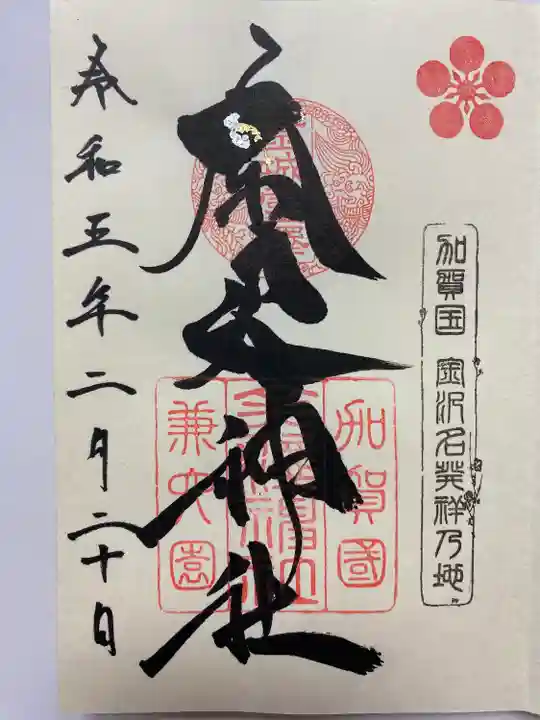 加賀国 金沢名発祥乃地
加賀國
兼六園
金澤神社
令和五年二月二十日